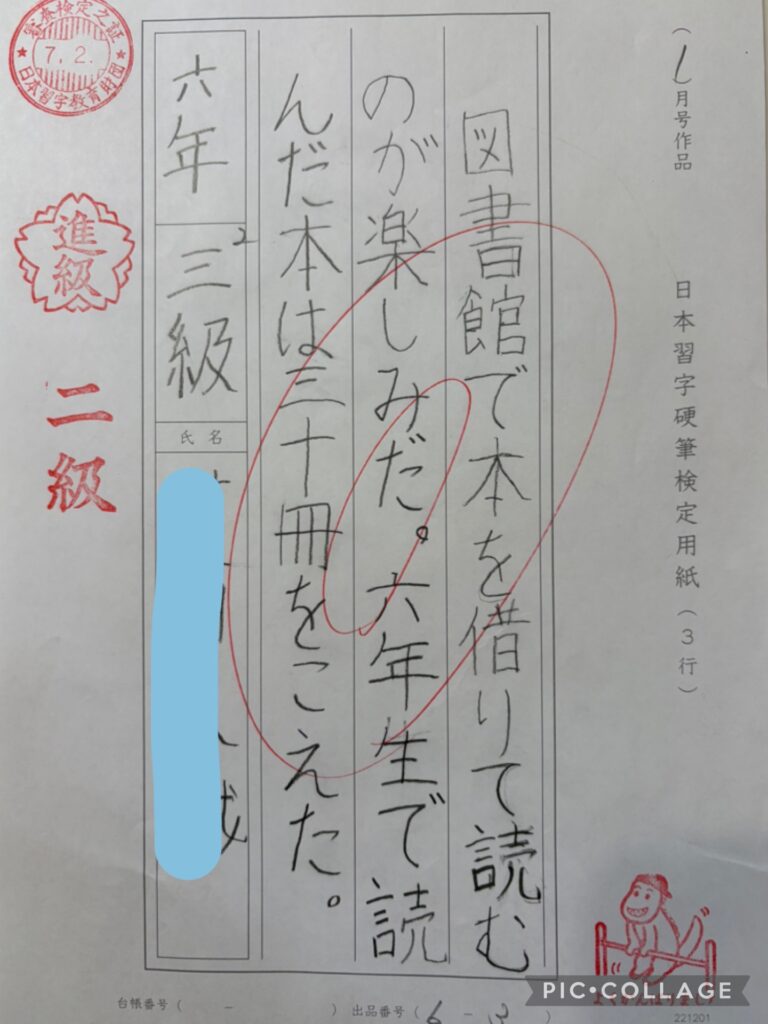 (1月号作品
日本習字硬筆検定用紙(3行)
図書館で本を借りて読む
のが楽しみだ。六年生で読
んだ本は三十冊をこえた。
六年
三級
2
氏名
審査検定之証
7.2.
日本習字教育財団
進級
二級
台帳番号( - )
出品番号(6-13)
よくがんばりました
PIC•COLLAGE
221201